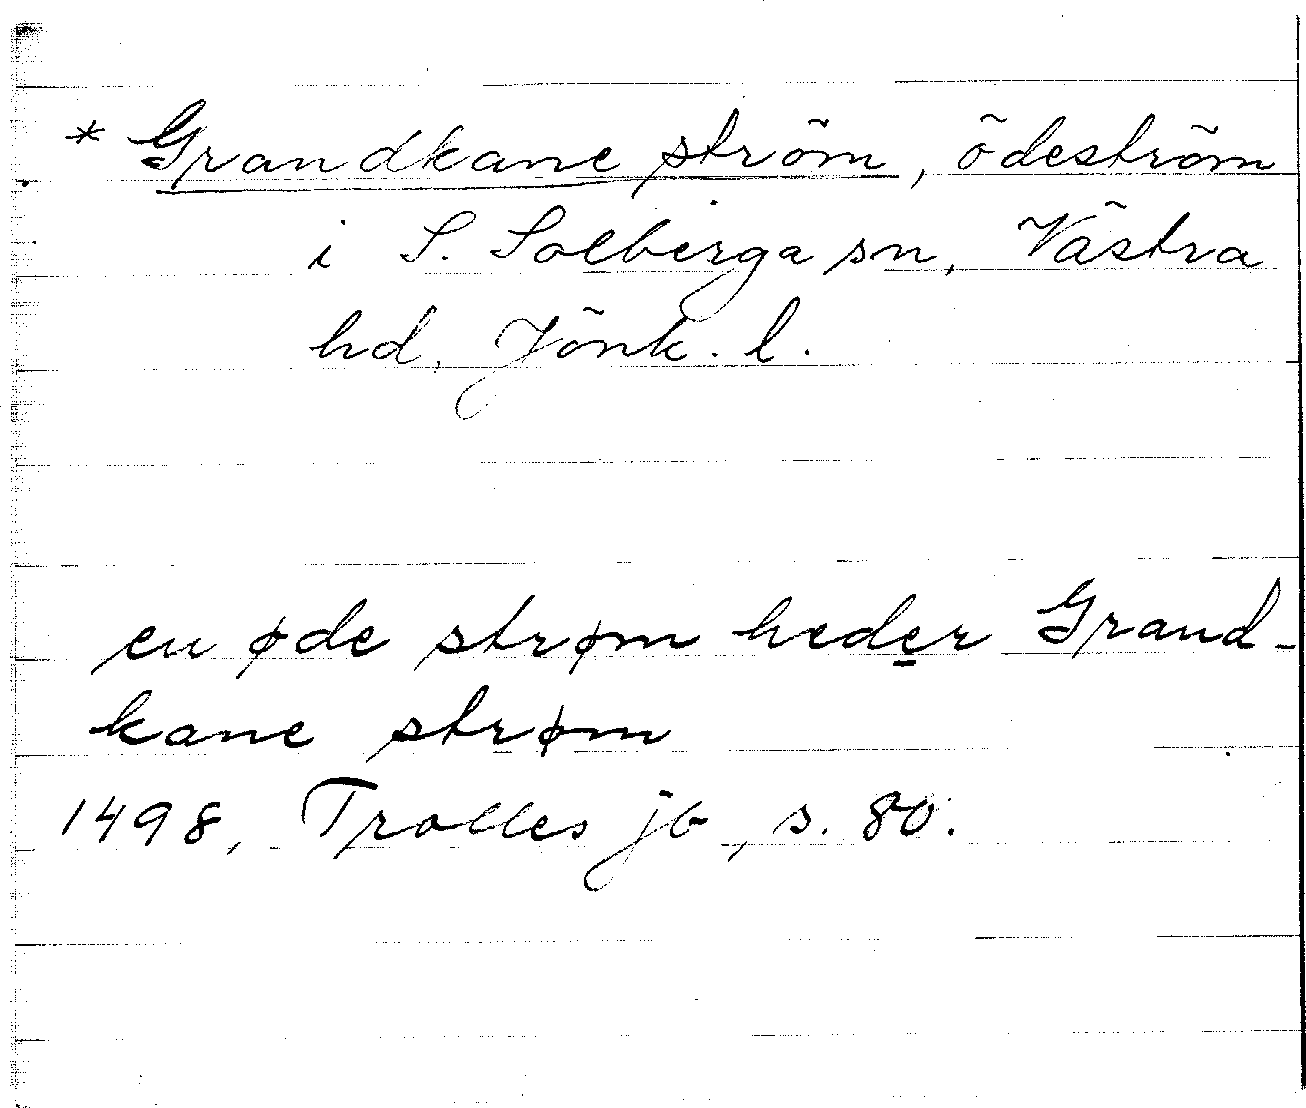 * Grandkane ström, ödeström
i S. Solberga sn, Västra
hd, Jönk. l.
en øde strøm heder Grand-
kane strøm
1498, Trolles jb, s. 80.